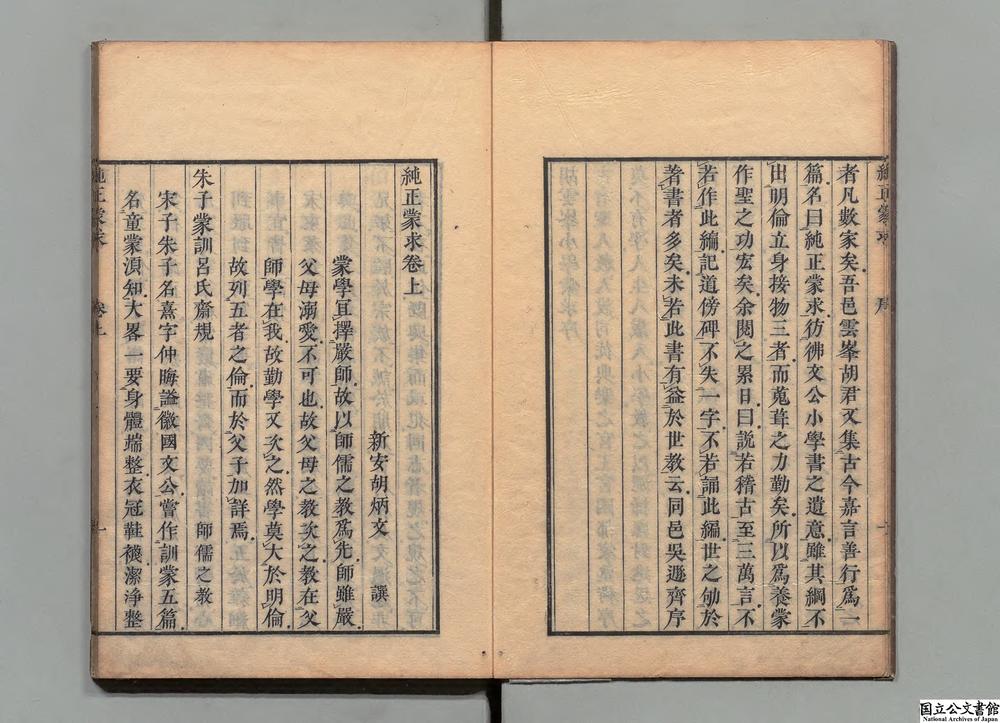 純正蒙求 序
者凡數家矣吾邑雲峯胡君又集古今嘉言善行爲一
篇名曰純正蒙求彷彿文公小學書之遺意雖其綱不
出明倫立身接物三者而蒐葺之力勤矣所以爲養蒙
作聖之功宏矣余閱之累日曰説若稽古至三萬言不
若作此編記道傍碑不失一字不若誦此編世之劬於
著書者多矣未若此書有益於世教云同邑吳遯齊序
純正蒙求卷上
新安胡炳文 撰
蒙學亙擇嚴師故以師儒之教爲先師雖嚴
父母溺愛不可也故父母之教次之教在父
師學在我故勤學又次之然學莫大於明倫
故列五者之倫而於父子加詳焉
朱子蒙訓呂氏齋規 師儒之教
宋子朱子名熹字仲晦謚徽國文公嘗作訓蒙五篇
名童蒙湏知大畧一要身體端整衣冠鞋襪潔淨整
純正蒙求 卷上
国立公文書館
National Archives of Japan